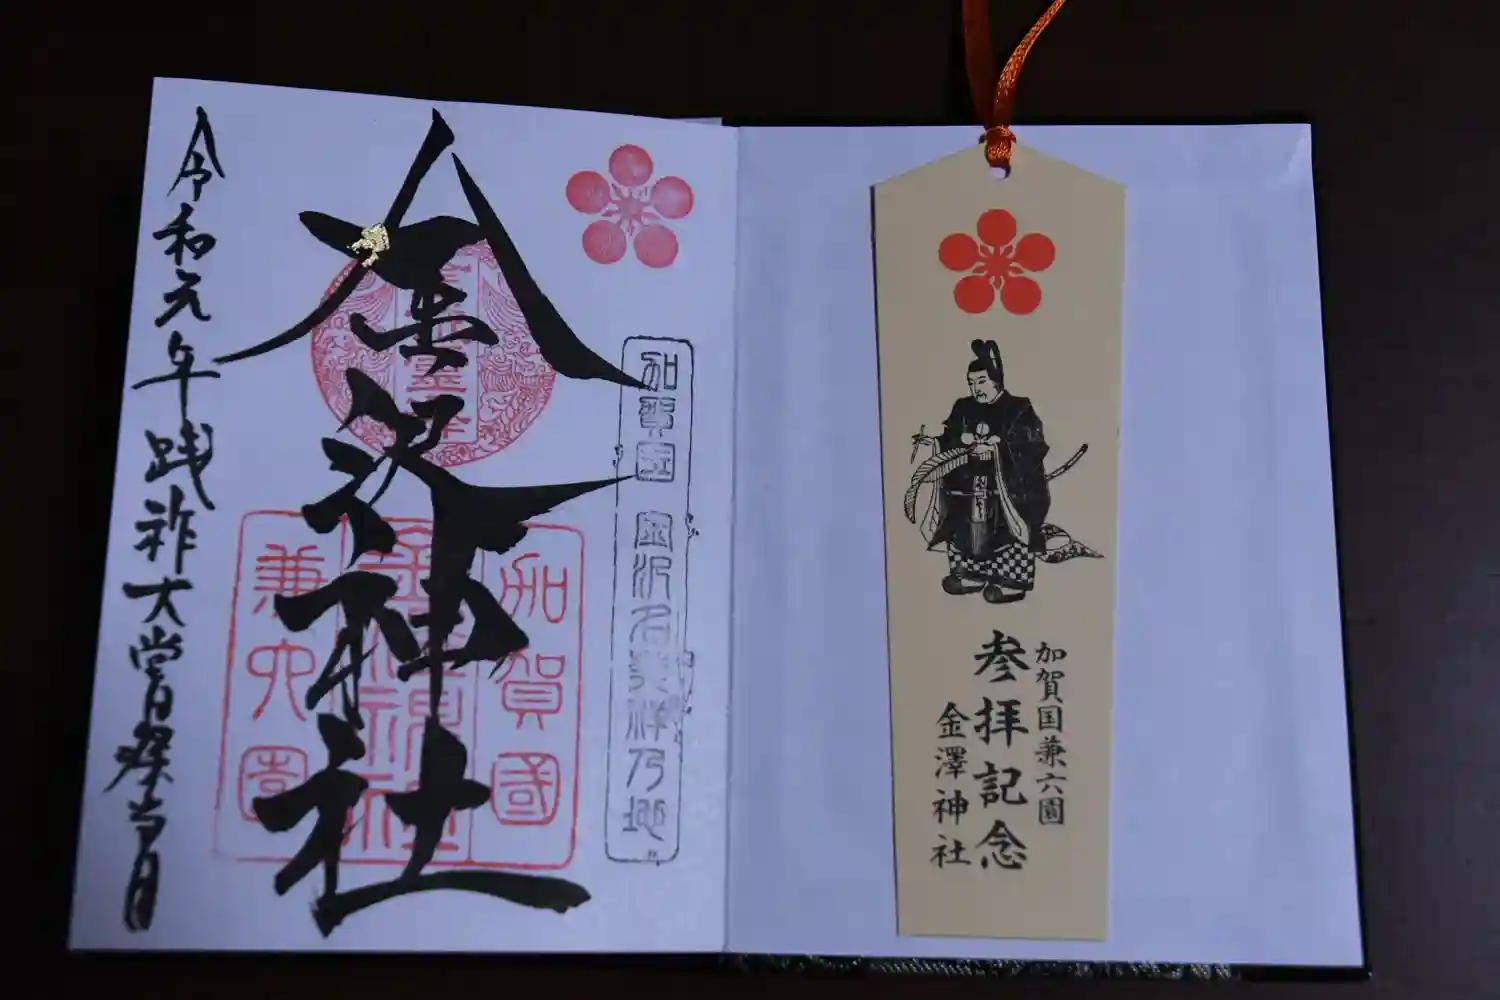 加賀国 金沢名発祥乃地
金沢神社
加賀國
金澤神社
兼六園
令和元年践祚大嘗祭当月
加賀国兼六園
参拝記念
金澤神社